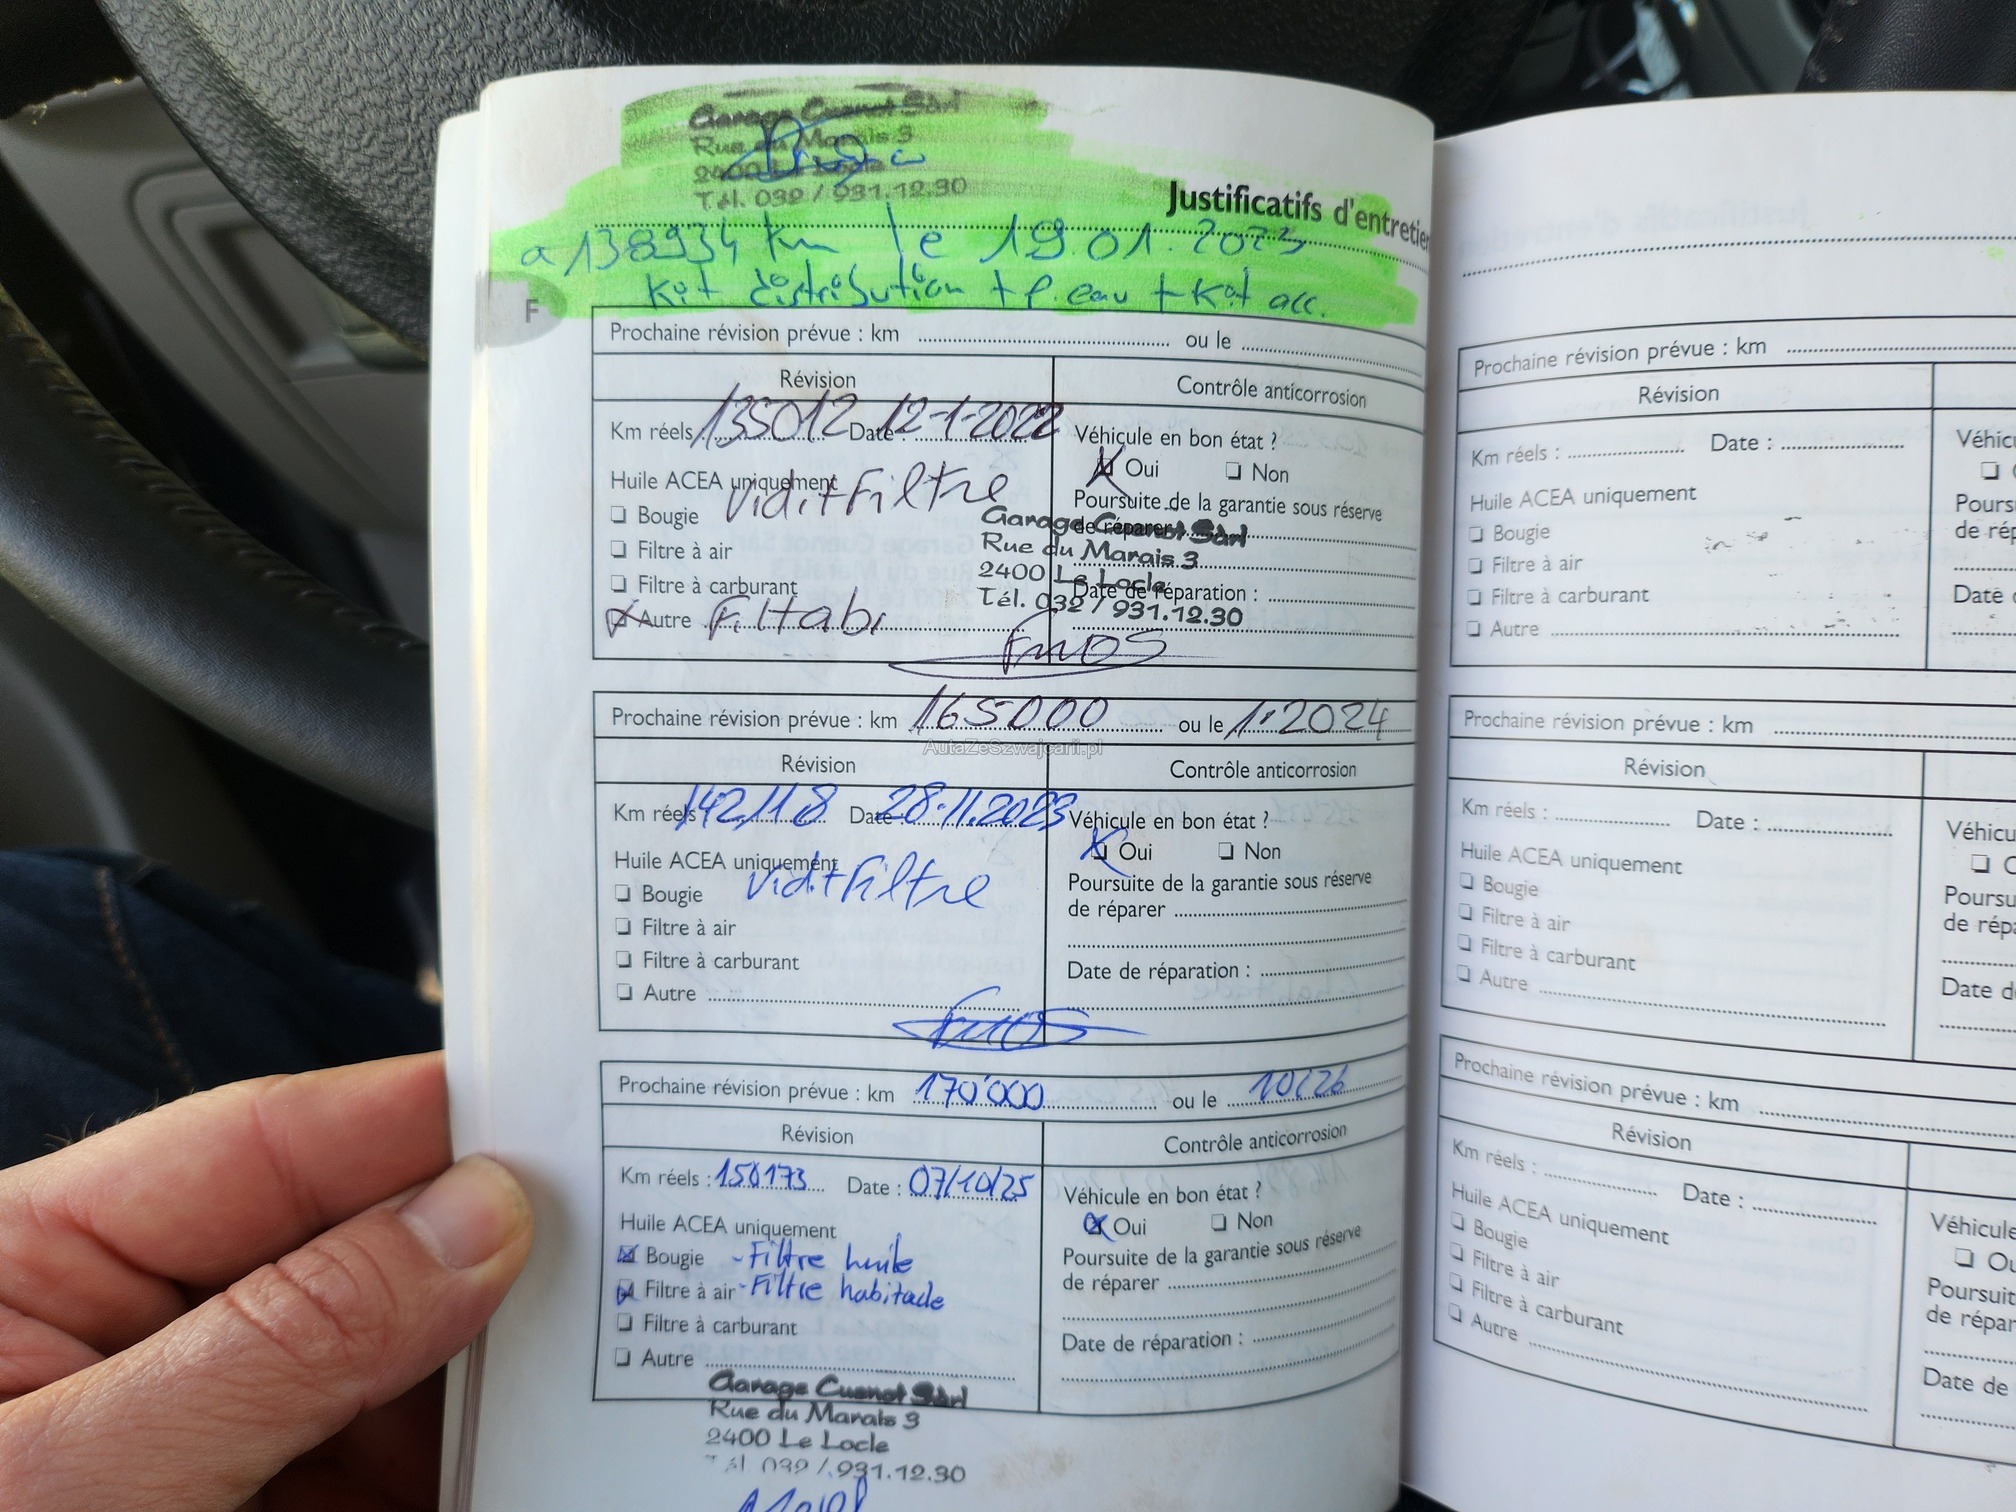 Garage Cuenot Sàrl
Rue du Marais 3
2400 Le Locle
Tél. 032 / 931.12.30
Justificatifs d'entretien
a 138934 km le 19.01.2023
Kit distribution + p. eau + Kit acc.
F
Prochaine révision prévue : km ou le
Révision
Contrôle anticorrosion
Km réels : 135012 Date : 12-1-2022
Véhicule en bon état ?
Oui Non
Huile ACEA uniquement
Vid. + Filtre
Bougie
Filtre à air
Filtre à carburant
Autre Filt abi
Poursuite de la garantie sous réserve
de réparer
Garage Cuenot Sàrl
Rue du Marais 3
2400 Le Locle
Date de réparation :
Tél. 032 / 931.12.30
Prochaine révision prévue : km 165000 ou le 1.2024
AutaZeSzwajcarii.pl
Révision
Contrôle anticorrosion
Km réels 142118 Date 28.11.2023
Véhicule en bon état ?
Oui Non
Huile ACEA uniquement
Vid. + Filtre
Bougie
Filtre à air
Filtre à carburant
Autre
Poursuite de la garantie sous réserve
de réparer
Date de réparation :
Prochaine révision prévue : km 170'000 ou le 10/26
Révision
Contrôle anticorrosion
Km réels : 150173 Date : 07/10/25
Véhicule en bon état ?
Oui Non
Huile ACEA uniquement
Bougie - Filtre huile
Filtre à air - Filtre habitacle
Filtre à carburant
Autre
Poursuite de la garantie sous réserve
de réparer
Date de réparation :
Garage Cuenot Sàrl
Rue du Marais 3
2400 Le Locle
Tél. 032 / 931.12.30
Prochaine révision prévue : km
Révision
Km réels : Date :
Huile ACEA uniquement
Bougie
Filtre à air
Filtre à carburant
Autre
Prochaine révision prévue : km
Révision
Km réels : Date :
Huile ACEA uniquement
Bougie
Filtre à air
Filtre à carburant
Autre
Prochaine révision prévue : km
Révision
Km réels : Date :
Huile ACEA uniquement
Bougie
Filtre à air
Filtre à carburant
Autre